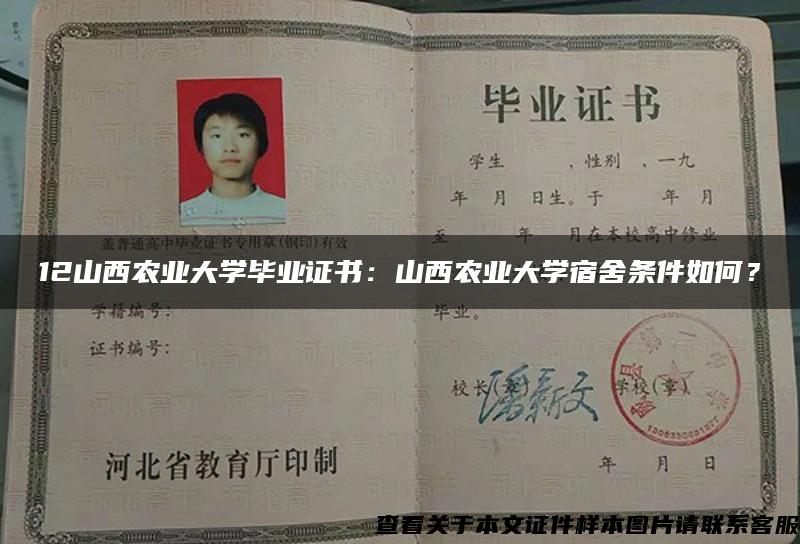 毕业证书
学生　　，性别　，一九
年　月　日生。于　　年　月
至　　年　月在本校高中修业
盖普通高中毕业证书专用章(钢印)有效
12山西农业大学毕业证书：山西农业大学宿舍条件如何？
学籍编号：
毕业。
证书编号：
校长(章)
潘新文
学校(章)
县第一中
河北省教育厅印制
年　月　日
查看关于本文证件样本图片请联系客服